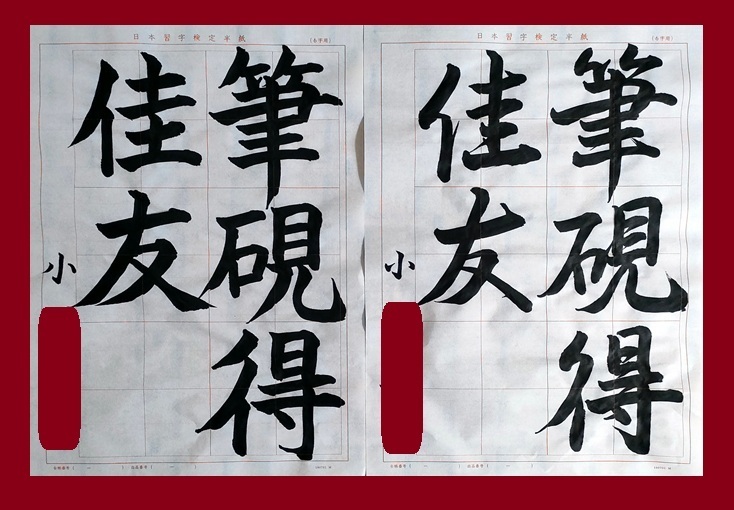 日本習字検定半紙
(6字用)
筆硯得
佳友
小
日本習字検定半紙
(6字用)
筆硯得
佳友
小